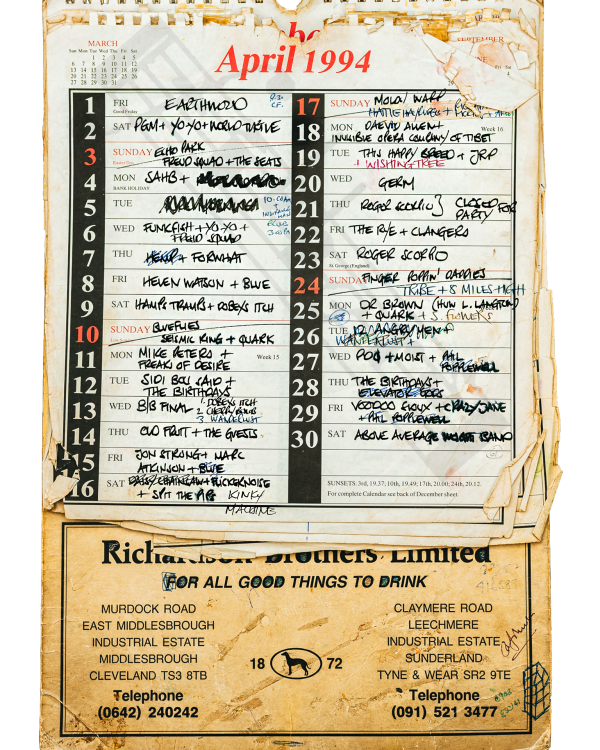 MARCH
Sun Mon Tue Wed Thu Fri Sat
1 2 3 4 5
6 7 8 9 10 11 12
13 14 15 16 17 18 19
20 21 22 23 24 25 26
27 28 29 30 31
SEPTEMBER
April 1994
1 FRI Good Friday EARTHWORD
2 SAT PGM + YO-YO + WORLD TURTLE
3 SUNDAY Easter Day ECHO PARK
FREUD SQUAD + THE SEATS
4 MON BANK HOLIDAY SAHB +
5 TUE
6 WED FUNKFISH + YO-YO +
FREUD SQUAD
7 THU + FORMHAT
8 FRI HELEN WATSON + BLUE
9 SAT HAMPS TRAMPS + ROBEYS ITCH
10 SUNDAY BLUEFLIES
SEISMIC KING + QUARK
11 MON MIKE PETERS + Week 15
FREAKS OF DESIRE
12 TUE SIDI BOU SAID +
THE BIRTHDAYS
13 WED B/B FINAL 1. ROBEYS ITCH
2. CHERRY BOMBS
3. WANDERLUST
14 THU OLD FRUIT + THE GUESTS
15 FRI JON STRONG + MARC
ATKINSON + BLUE
16 SAT DAISY CHAINSAW + FLICKERNOISE
+ SPIT THE PIG KINKY
MACHINE
17 SUNDAY MOLAI WAPP
HATTIE HAYRIDGE +
18 MON DAEVID ALLEN + Week 16
INVISIBLE OPERA COMPANY OF TIBET
19 TUE THIS HAPPY BREED + JRP
+ WISHING TREE
20 WED GERM
21 THU ROGER SCORPIO } CLOSED FOR
PARTY
22 FRI THE RYE + CLANGERS
23 SAT St. George (England) ROGER SCORPIO
24 SUNDAY FINGER POPPIN' DADDIES
TRIBE + 8 MILES HIGH
25 MON DR BROWN (HUW L. LANGTON)
+ QUARK + 5 FLOWERS
26 TUE 12 ANGRY MEN +
WANDERLUST +
27 WED POO + MOIST + PHIL
POPPLEWELL
28 THU THE BIRTHDAYS +
ELEVATOR GODS
29 FRI VOODOO SIOUX + CRAZY JANE
+ PHIL POPPLEWELL
30 SAT ABOVE AVERAGE WEIGHT BAND
SUNSETS: 3rd, 19.37; 10th, 19.49; 17th, 20.00; 24th, 20.12.
For complete Calendar see back of December sheet.
Richardson Brothers Limited
FOR ALL GOOD THINGS TO DRINK
MURDOCK ROAD
EAST MIDDLESBROUGH
INDUSTRIAL ESTATE
MIDDLESBROUGH
CLEVELAND TS3 8TB
Telephone
(0642) 240242
18 72
CLAYMERE ROAD
LEECHMERE
INDUSTRIAL ESTATE
SUNDERLAND
TYNE & WEAR SR2 9TE
Telephone
(091) 521 3477